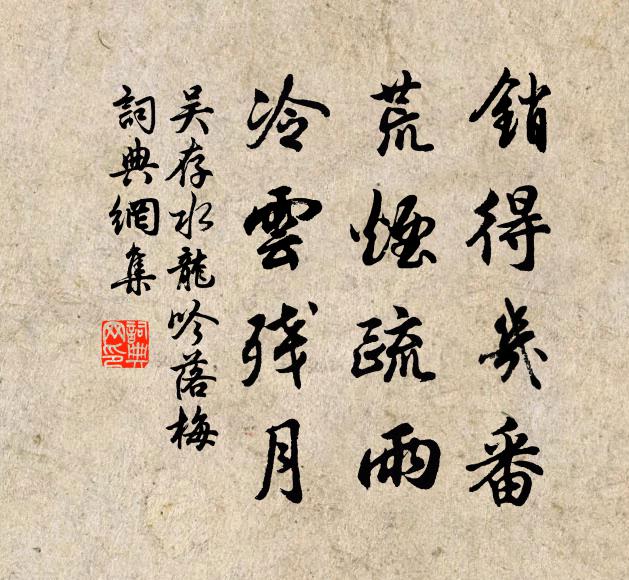 銷得幾番
荒煙疏雨
冷雲殘月
吳存水龍吟落梅
詞典網集
詞典网印